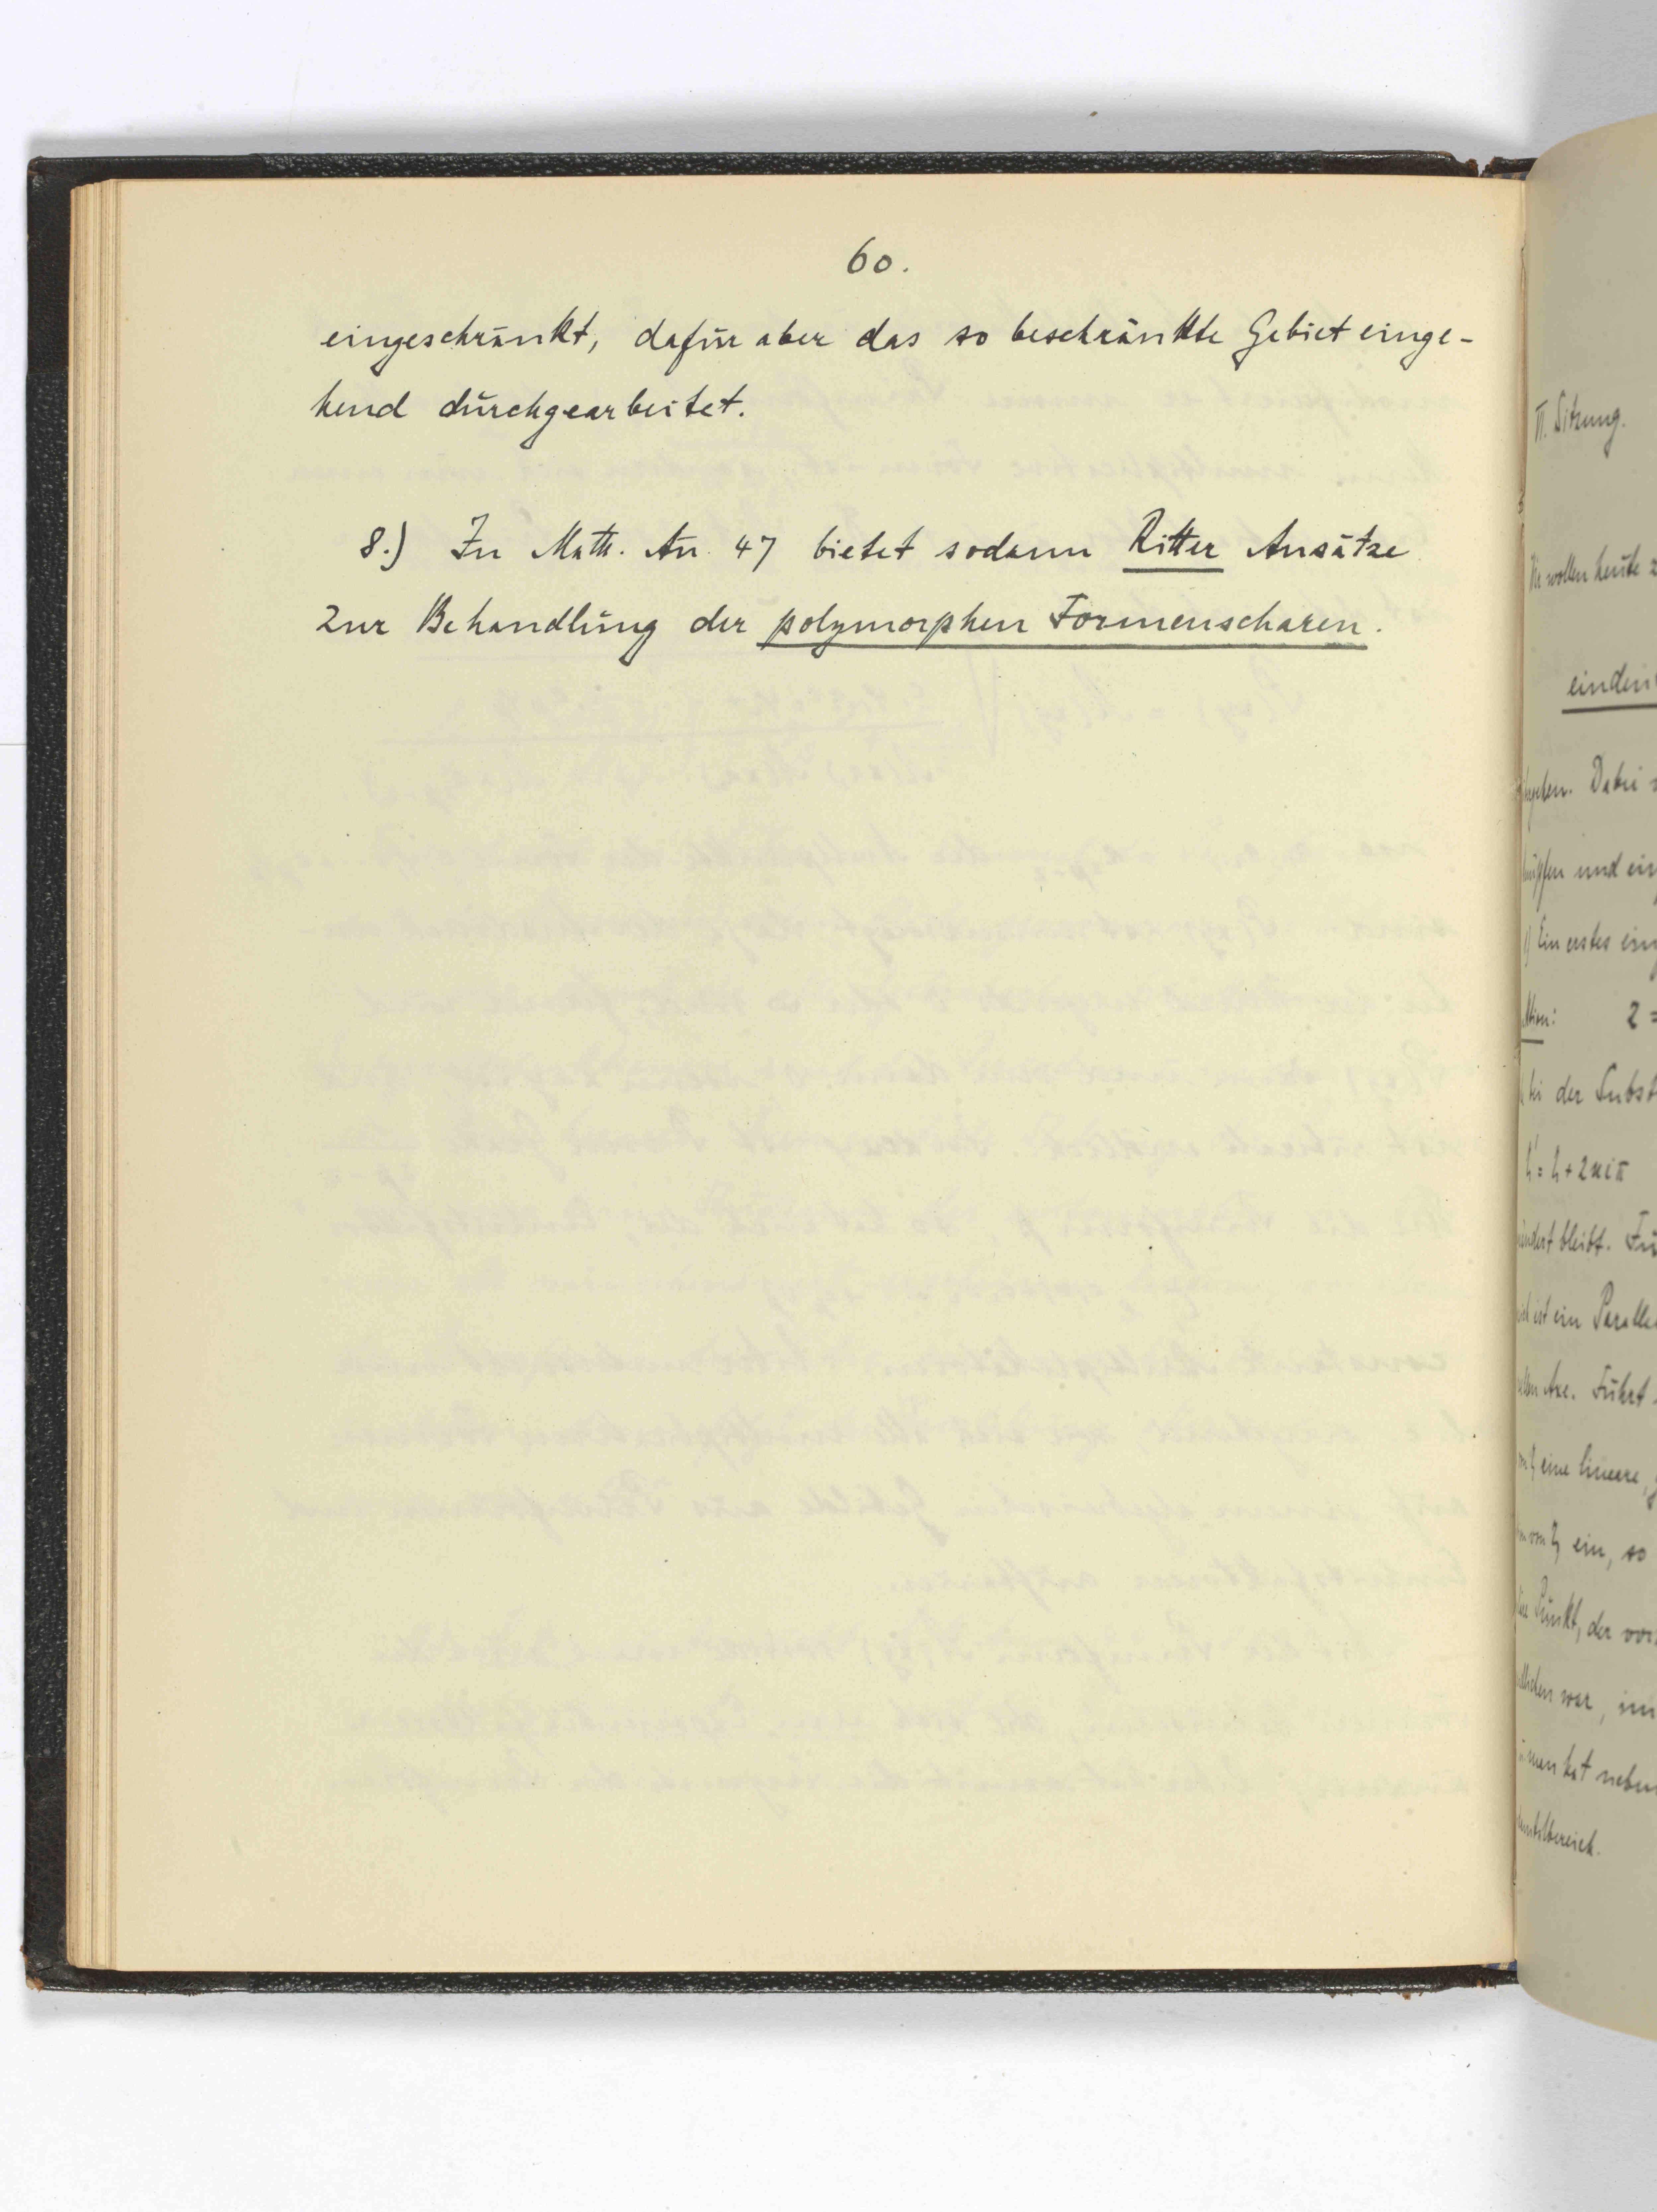 60.
eingeschränkt, dafür aber das so beschränkte Gebiet einge-
hend durchgearbeitet.
8.) In Math. An. 47 bietet sodann Ritter Ansätze
zur Behandlung der polymorphen Formenscharen.
II. Sitzung.
wollen heute
eindeu
geben. Dabei
und ein
1) Ein erstes ein
ktion: Z =
bei der Subst
η' = η + 2κiπ
ändert bleibt. Fü
ist ein Paralle
llen Axe. Führt
η eine lineare,
von η ein, so
Punkt, der vor
llichen war, im
man hat neben
ntalbereich.